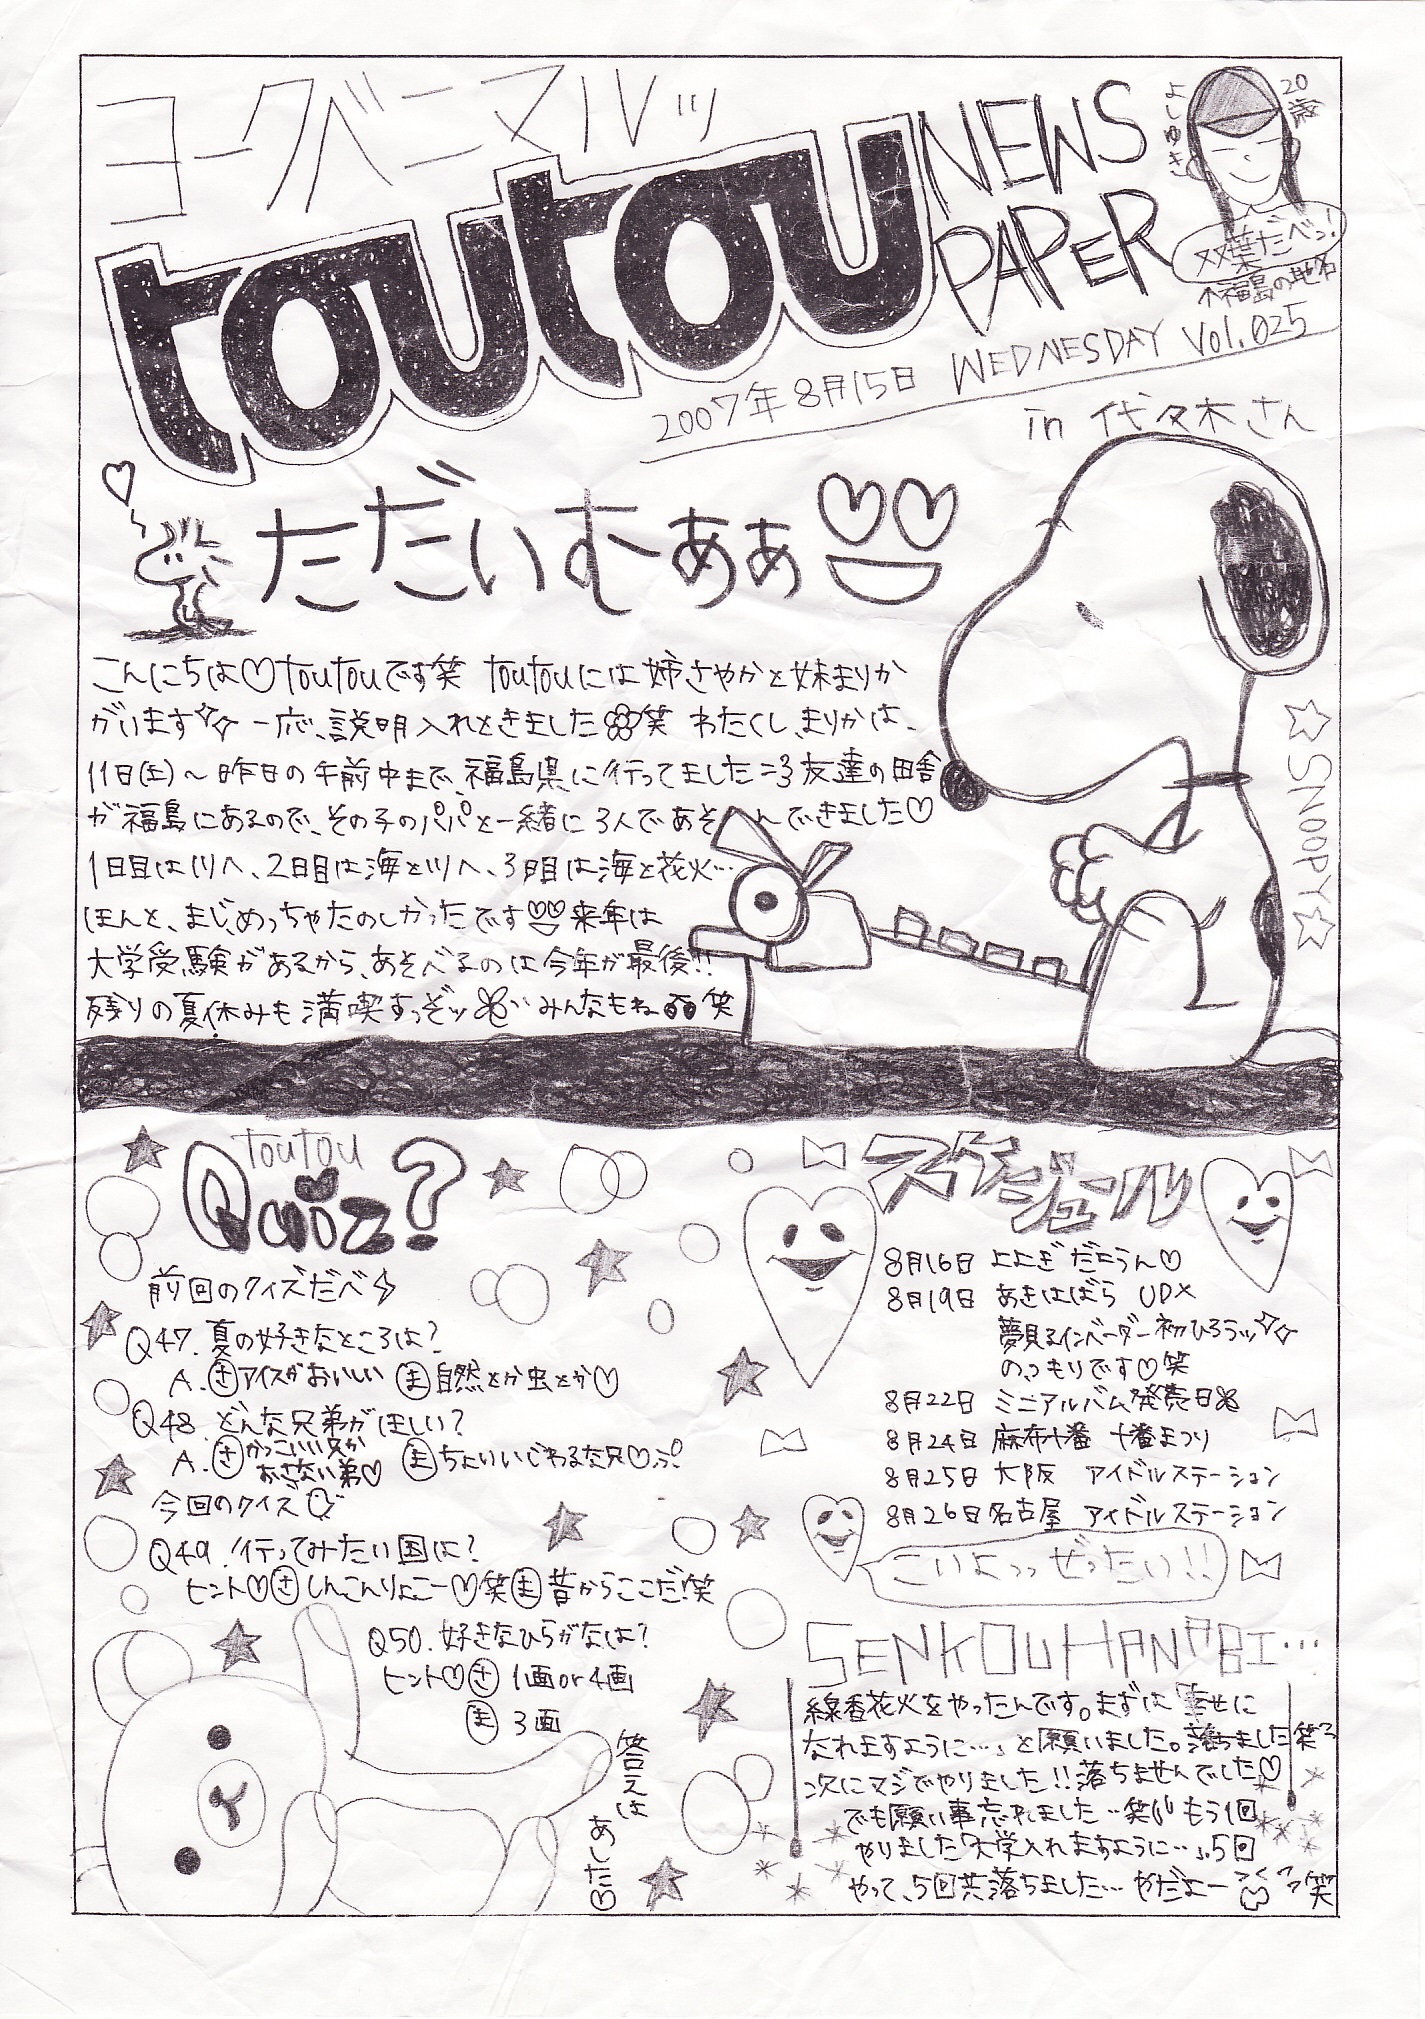 ヨークベニマルッ
toutou NEWS PAPER
20歳
よしゆき
双葉だべっ!
↑福島の地名
2007年8月15日 WEDNESDAY Vol.025
in 代々木さん
ただいむぁぁ
こんにちは♡toutouです笑 toutouには姉さやかと妹まりか
がいます 一応、説明入れときました 笑 わたくし、まりかは、
11日(土)~昨日の午前中まで、福島県に行ってました 友達の田舎
が福島にあるので、その子のパパと一緒に3人であそんできました♡
1日目は川へ、2日目は海と川へ、3日目は海と花火…
ほんと、まじ、めっちゃたのしかったです 来年は
大学受験があるから、あそべるのは今年が最後!!
残りの夏休みも満喫すっぞッ みんなもね 笑
☆SNOOPY☆
toutou
Quiz?
前回のクイズだべ
Q47. 夏の好きなところは?
A. さ アイスがおいしい ま 自然とか虫とか♡
Q48. どんな兄弟がほしい?
A. さ かっこいい兄か
おさない弟♡ ま ちょいいじわるな兄♡
今回のクイズ
Q49. 行ってみたい国は?
ヒント♡ さ しんこんりょこー♡笑 ま 昔からここだ!笑
Q50. 好きなひらがなは?
ヒント♡ さ 1画or4画
ま 3画
答えは
あした
スケジュール
8月16日 よよぎ だにうん♡
8月19日 あきはばら UDX
夢見るインベーダー初ひろうッ
のつもりです♡笑
8月22日 ミニアルバム発売日
8月24日 麻布十番 十番まつり
8月25日 大阪 アイドルステーション
8月26日 名古屋 アイドルステーション
こいよっっぜったい!!
SENKOUHANABI…
線香花火をやったんです。まずは「幸せに
なれますように…」と願いました。落ちました笑
次にマジでやりました!!落ちませんでした♡
でも願い事忘れました…笑 もう1回
やりました「大学入れますように…」5回
やって、5回共落ちました… やだよー 笑